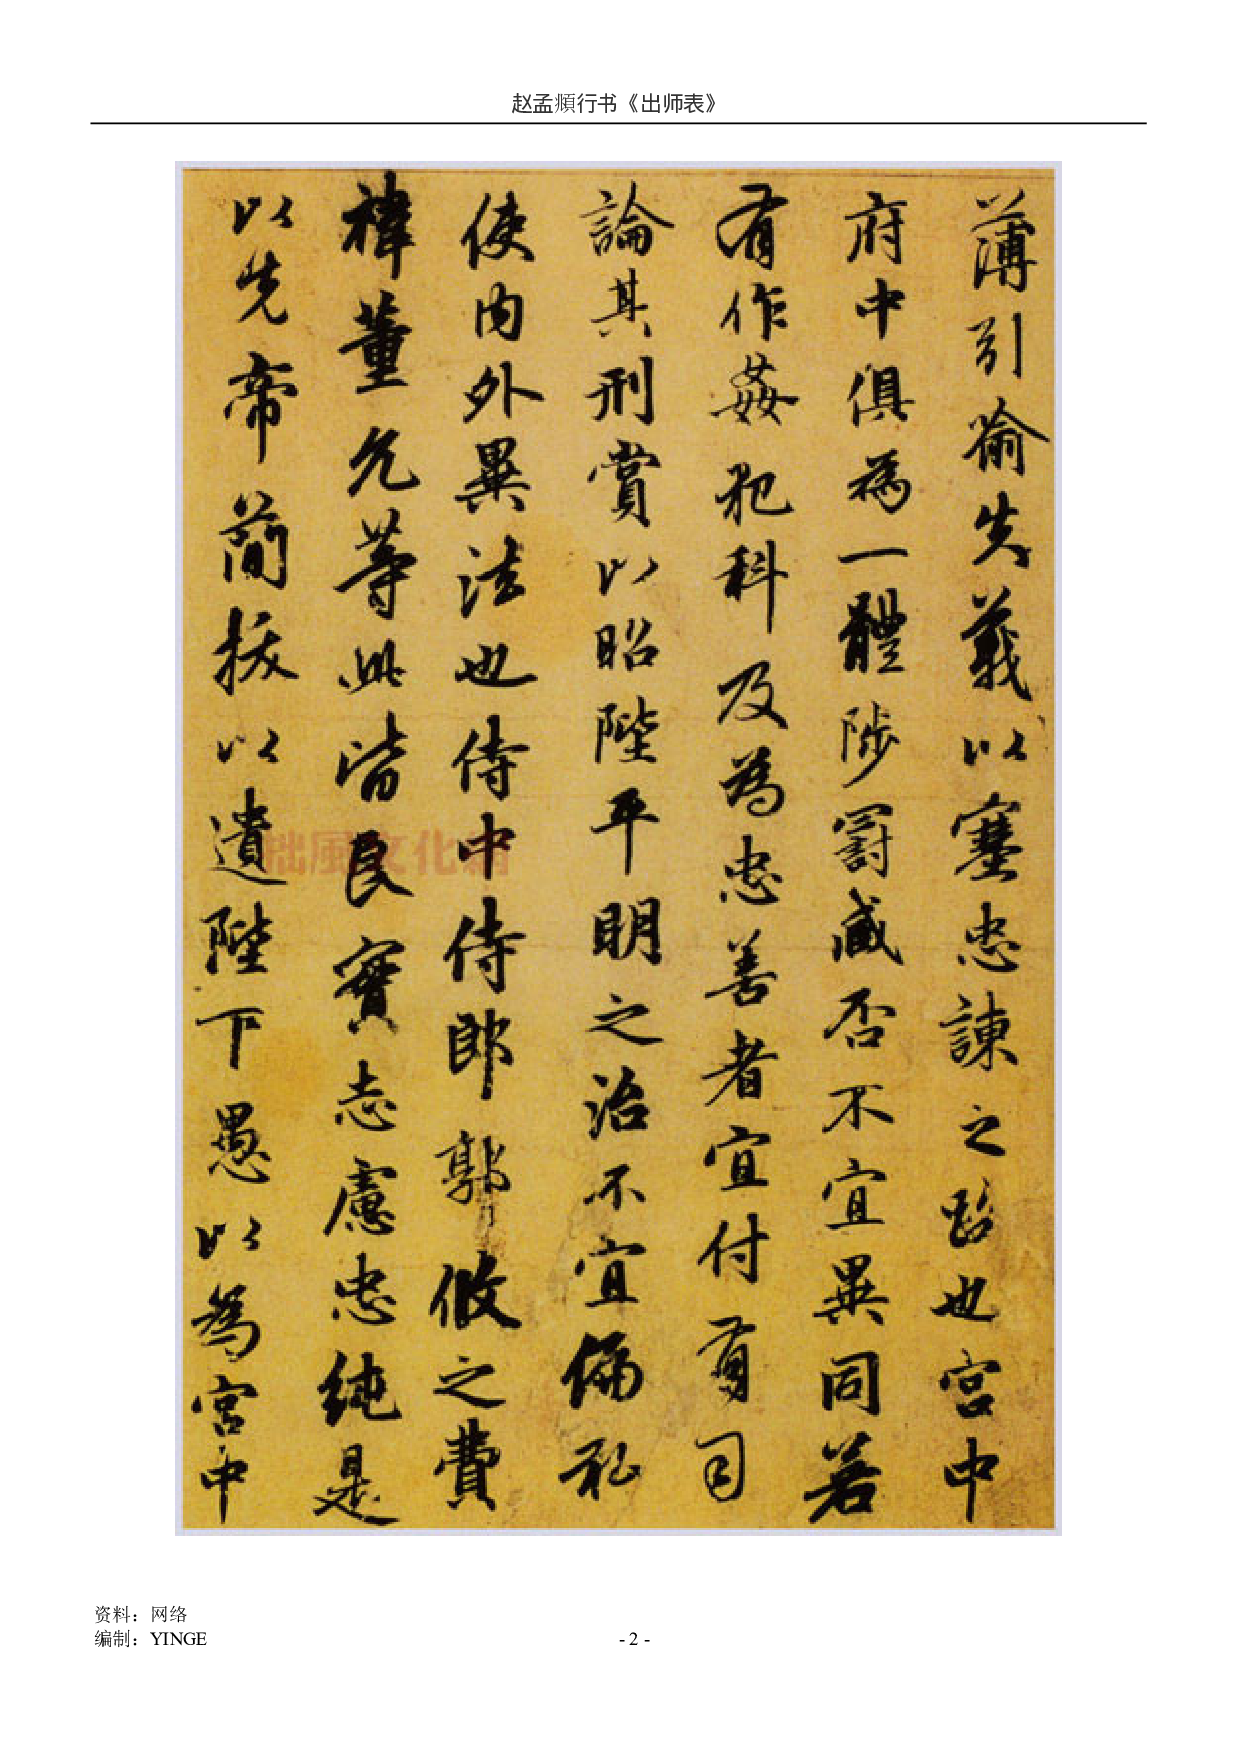 赵孟頫行书《出师表》
薄引喻失義以塞忠諫之路也宮中
府中俱為一體陟罰臧否不宜異同若
有作姦犯科及為忠善者宜付有司
論其刑賞以昭陛平明之治不宜偏私
使內外異法也侍中侍郎郭攸之費
禕董允等此皆良實志慮忠純是
以先帝簡拔以遺陛下愚以為宮中
拙風文化網
资料：网络
编制：YINGE
- 2 -